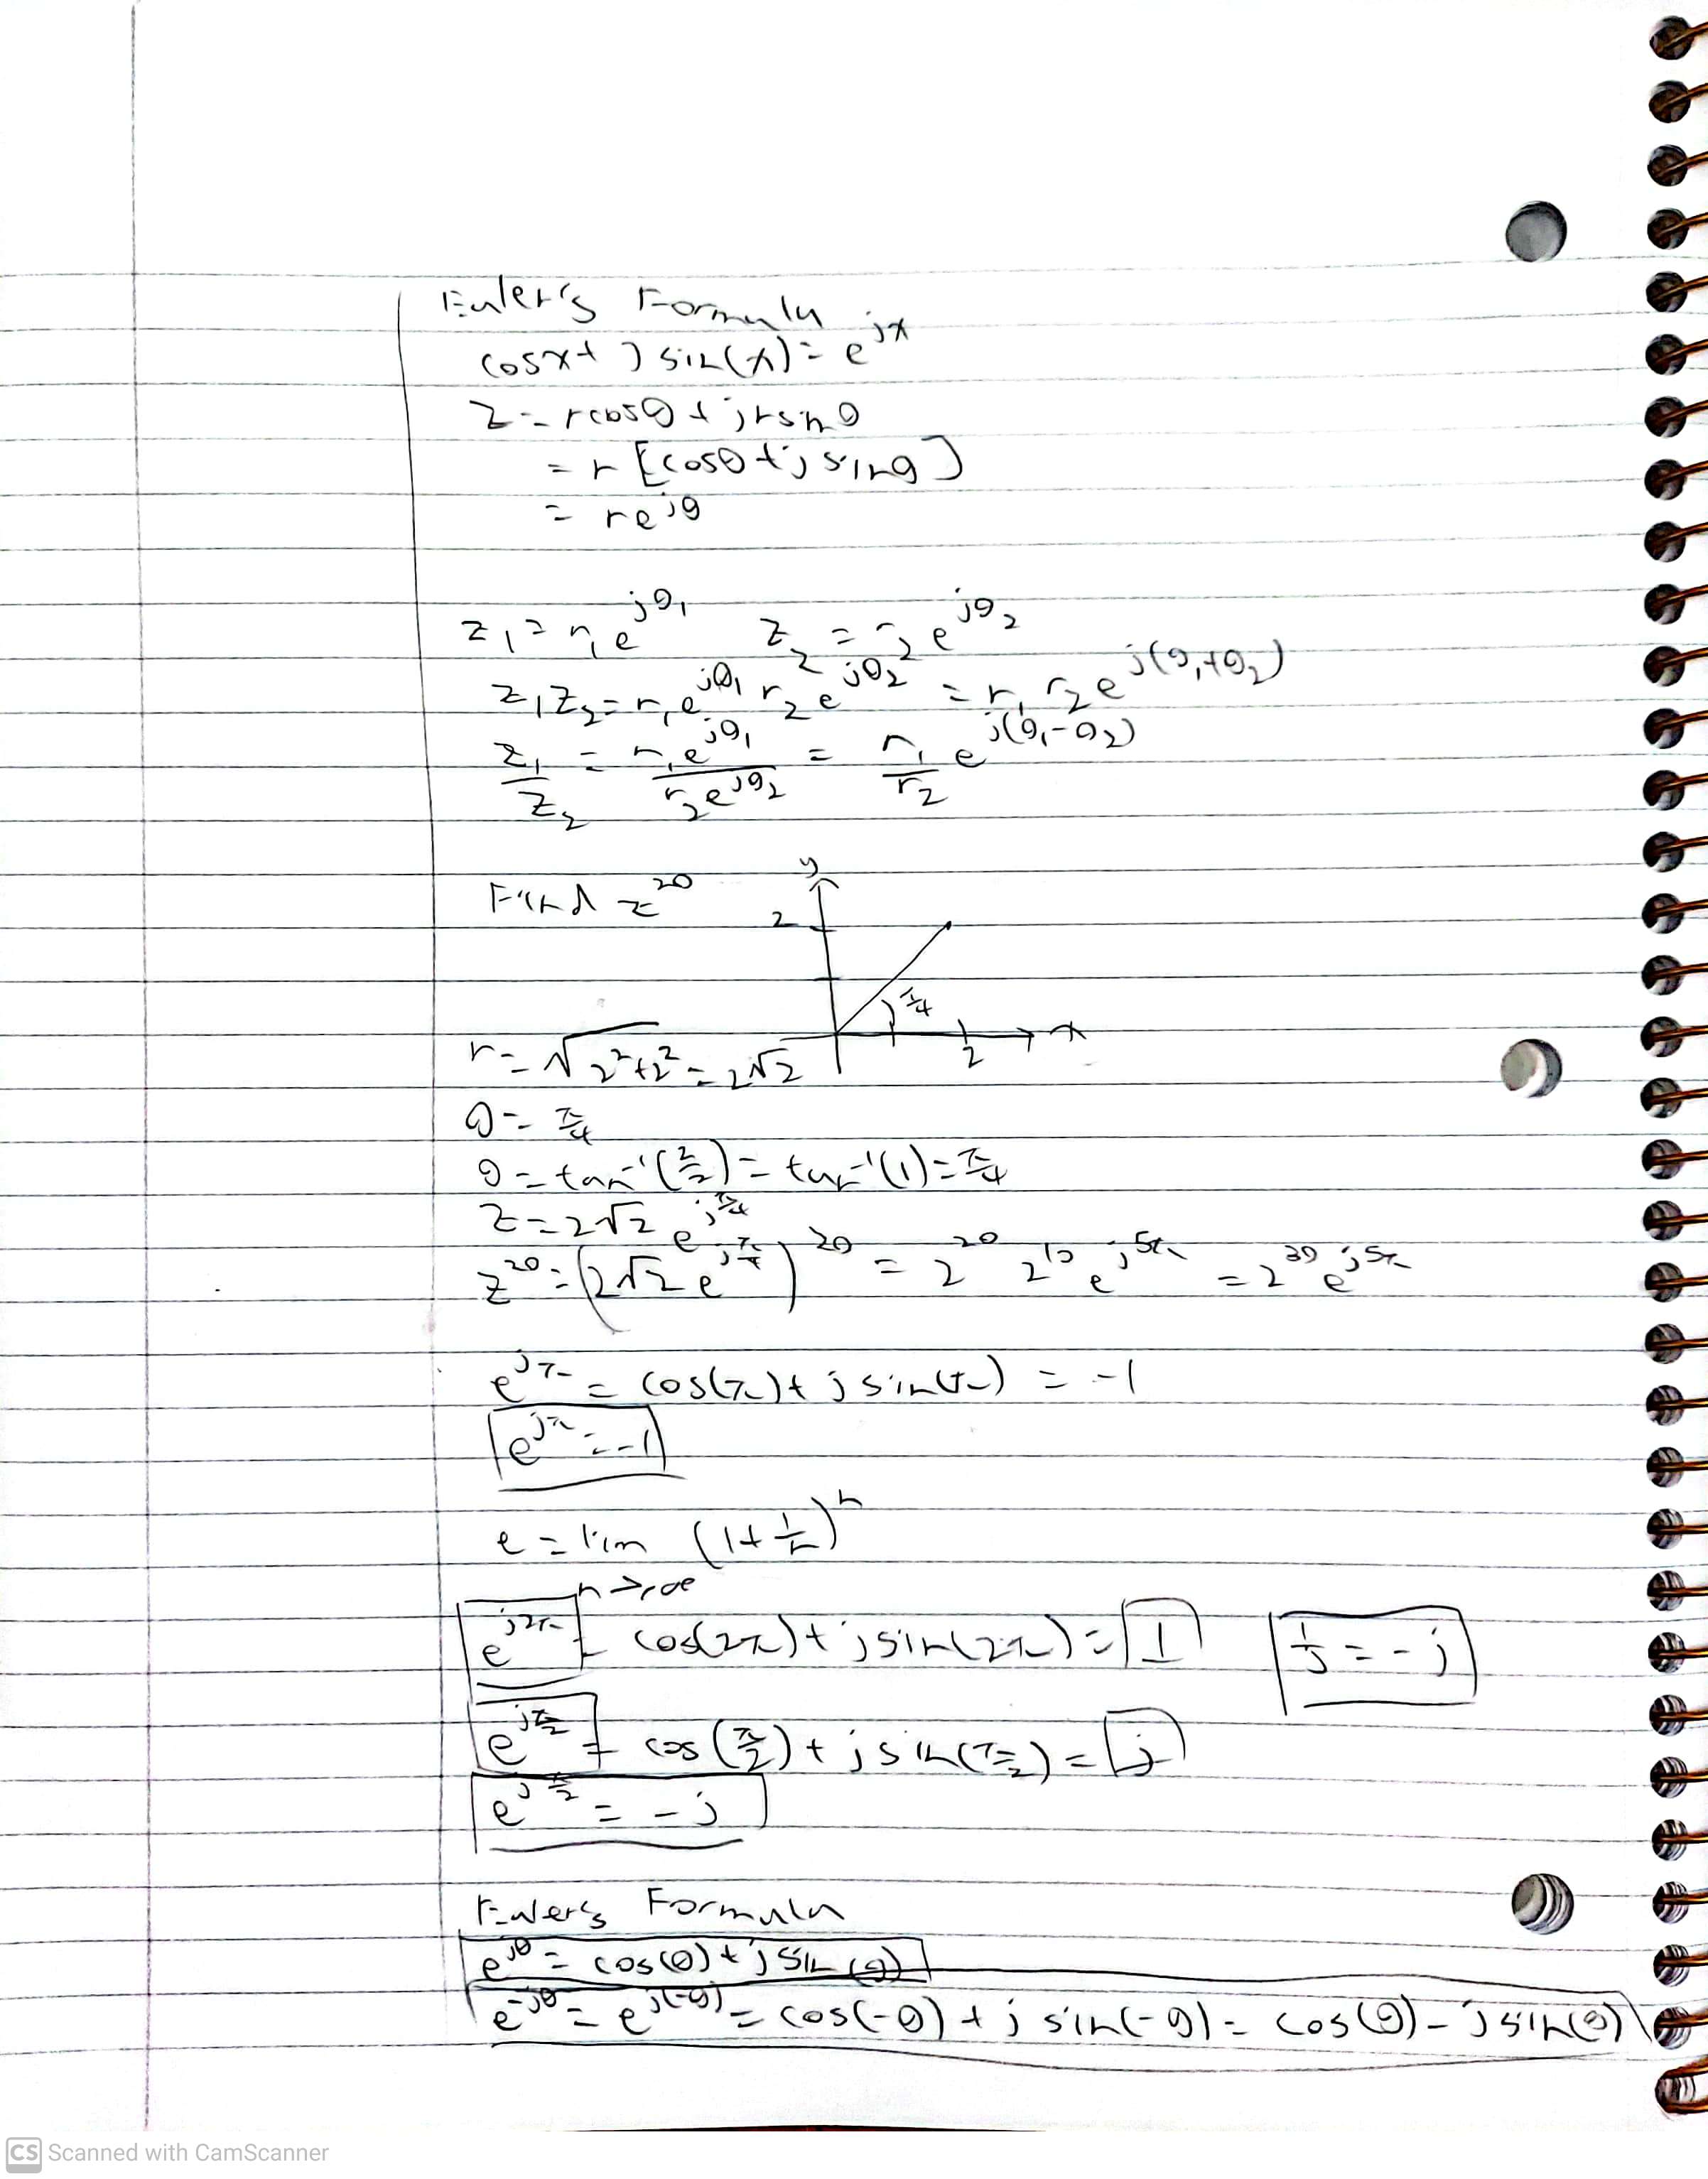 Euler's Formula
cosx + j sin(x) = e^jx
z = rcosθ + jrsinθ
= r [cosθ + j sinθ]
= re^jθ
z₁ = r₁e^jθ₁ z₂ = r₂e^jθ₂
z₁z₂ = r₁e^jθ₁ r₂e^jθ₂ = r₁r₂e^j(θ₁+θ₂)
z₁/z₂ = r₁e^jθ₁/r₂e^jθ₂ = r₁/r₂ e^j(θ₁-θ₂)
Find z^20
y
2
π/4
x
2
r = √2²+2² = 2√2
θ = π/4
θ = tan⁻¹(2/2) = tan⁻¹(1) = π/4
z = 2√2 e^jπ/4
z^20 = (2√2 e^jπ/4)^20 = 2^20 2^10 e^j5π = 2^30 e^j5π
e^jπ = cos(π) + j sin(π) = -1
e^jπ = -1
e = lim (1+1/n)^n
n->∞
e^j2π = cos(2π) + jsin(2π) = 1 1/j = -j
e^jπ/2 = cos(π/2) + j sin(π/2) = j
e^jπ/2 = -j
Euler's Formula
e^jθ = cos(θ) + j sin(θ)
e^-jθ = e^j(-θ) = cos(-θ) + j sin(-θ) = cos(θ) - jsin(θ)
CS Scanned with CamScanner